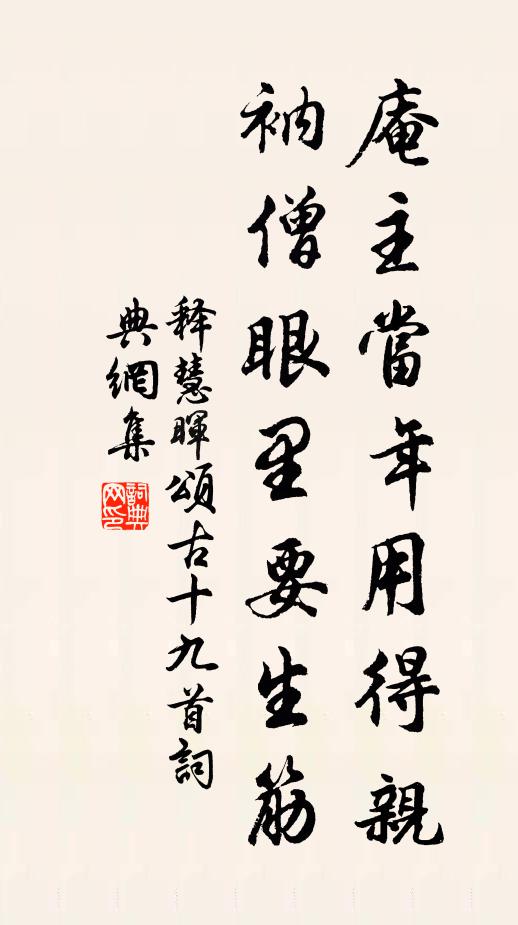 庵主當年用得親
衲僧眼里要生筋
释慧暉頌古十九首詞
典網集
詞典网印